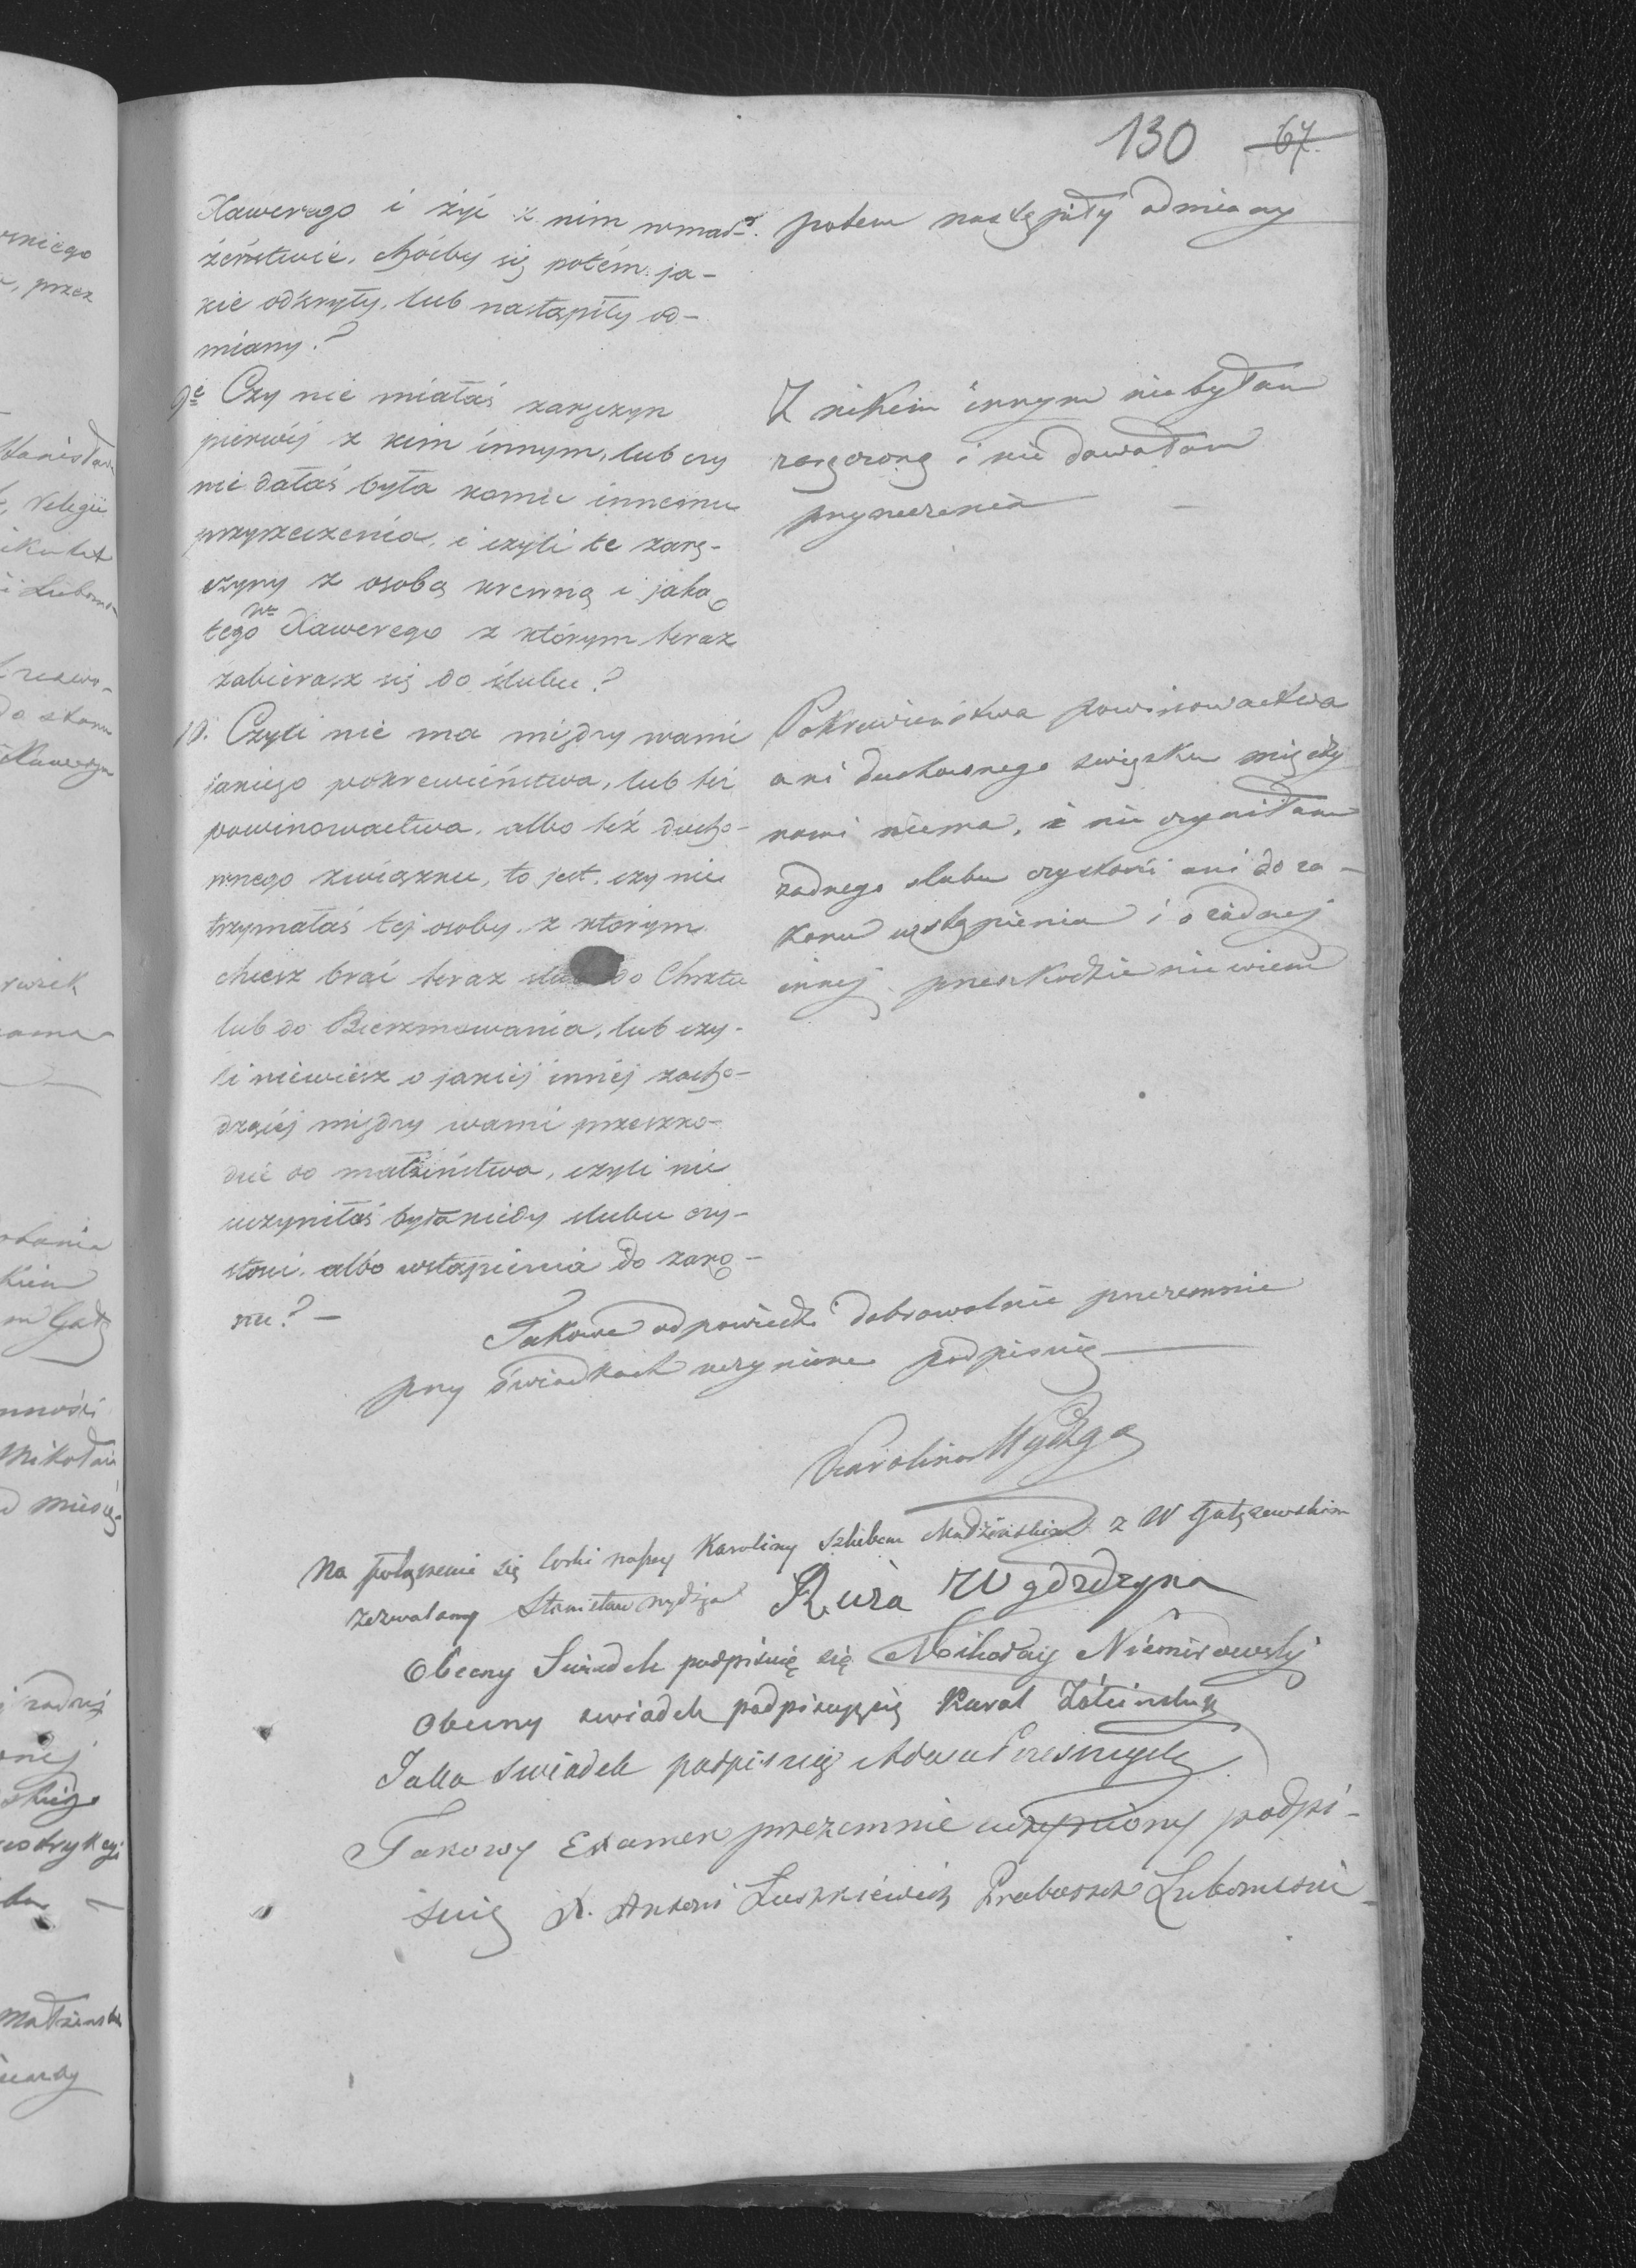 130 67.
Xawerego i żyć z nim w mał-
żeństwie, choćby się potém ja-
kie odkryły, lub nastąpiły od-
miany?
potem nastąpiły odmiany
9e Czy nie miałaś zaręczyn
pierwéj z kim innym, lub czy
nie dałaś była komu innemu
przyrzeczenia, i czyli te zarę-
czyny z osobą krewną i jaką
tego Wo Xawerego z którym teraz
zabierasz się do ślubu?
Z nikim innym nie byłam
zaręczoną i nie dawałam
przyrzeczenia —
10. Czyli nie ma między wami
jakiego pokrewieństwa, lub też
powinowactwa, albo też ducho-
wnego związku, to jest, czy nie
trzymałaś tej osoby, z którym
chcesz brać teraz do Chrztu
lub do Bierzmowania, lub czy-
li niewiesz o jakiéj innéj zacho-
dzącéj między wami przeszko-
dzie do małżeństwa, czyli nie
uczyniłaś była kiedy ślubu czy-
stości, albo wstąpienia do zako-
nu? —
Pokrewieństwa powinowactwa
ani duchownego związku między
nami niema, i nie czyniłam
żadnego slubu czystości ani do za-
konu wstąpienia i o żadnej
innej przeszkodzie nie wiem
Takowe odpowiedzi dobrowolnie przezemnie
przy świadkach uczynione podpisuię —
Karolina Wydżga
Na połączenie się Corki naszey Karoliny Szlubem Małżeńskim z W Gałęzewskim
zezwalamy Stanisław Wydżga Ruża Wydżdzyna
Obecny Swiadek podpisuię się Mikołay Niemirowsky
Obecny swiadek podpisuję się Karol
Jako swiadek podpisuię Adam
Takowy Examen przezemnie uczyniony podpi-
suię X. Antoni Łuszkiéwicz Proboszcz